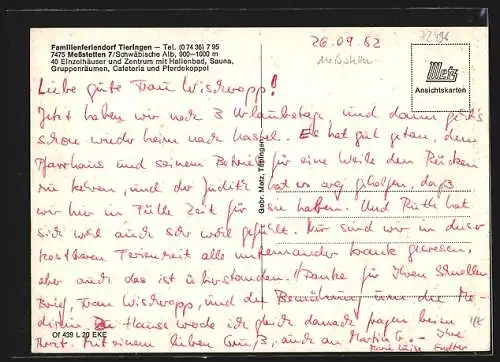 Familienferiendorf Tieringen – Tel. (07436) 795
7475 Meßstetten 7/Schwäbische Alb, 900–1000 m
40 Einzelhäuser und Zentrum mit Hallenbad, Sauna,
Gruppenräumen, Cafeteria und Pferdekoppel
26.09.82
72496
Meßstetten
Metz
Ansichtskarten
Liebe gute Frau Wischropp!
Jetzt haben wir noch 3 Urlaubstage, und dann geht's
schon wieder heim nach Kassel. Es hat gut getan, dem
Pfarrhaus und seinem Betrieb für eine Weile den Rücken
zu kehren, und der Judith hat es arg geholfen, daß
wir hier in Fülle Zeit für sie haben. Und Ruth hat
sich wohl auch sehr wohl gefühlt. Nur sind wir in dieser
kostbaren Ferienzeit alle untereinander krank gewesen,
aber auch das ist überstanden. Danke für Ihren schnellen
Brief, Frau Wischropp, und die Bemühung um die Medizin.
Zu Hause werde ich gleich danach fragen beim
Arzt. Mit einem lieben Gruß, auch an Martin G. – Ihre
Marie Luise
Gebr. Metz, Tübingen
Of 439 L 20 EKE